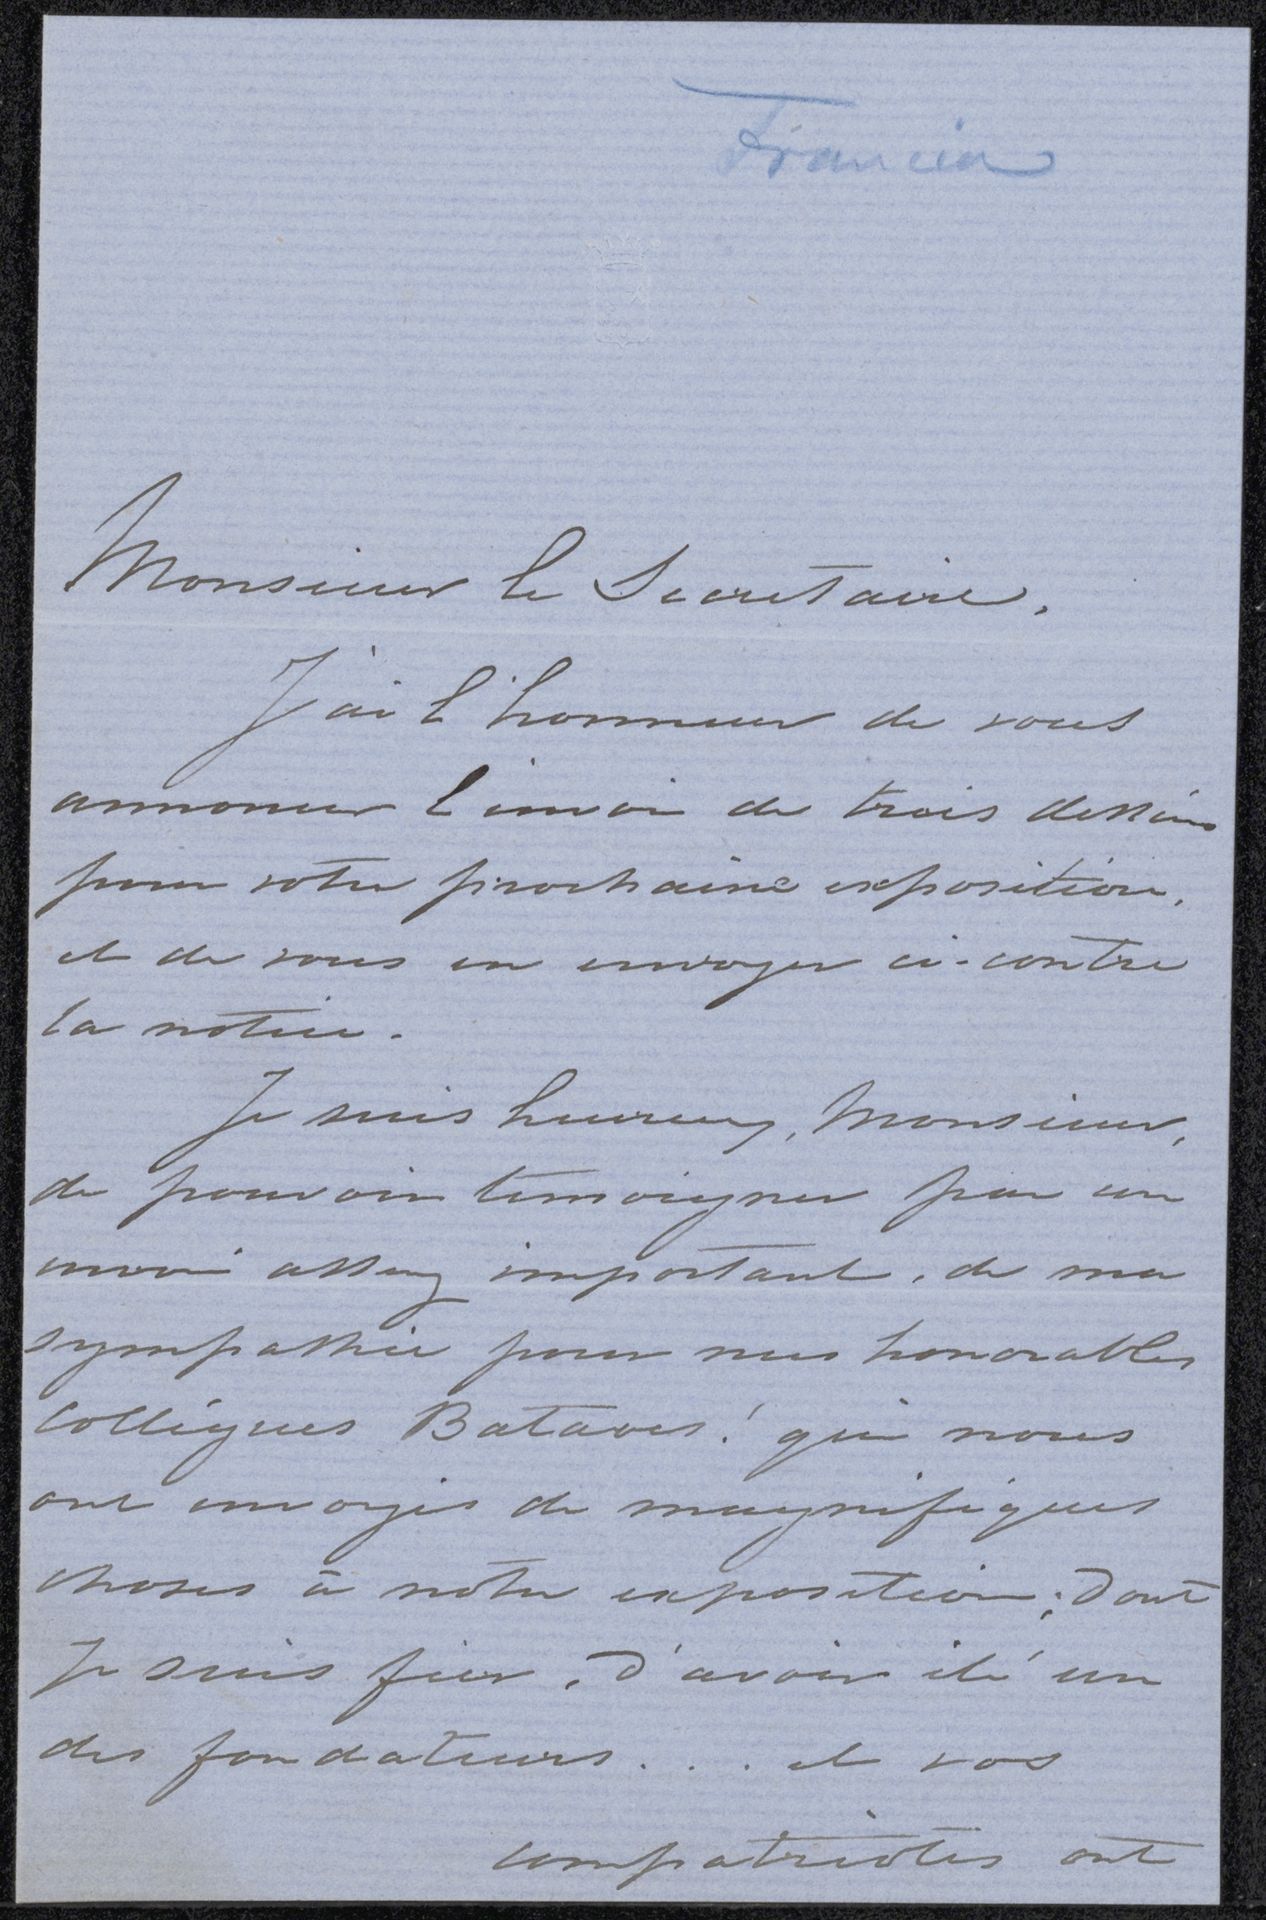 Francia
Monsieur le Secretaire,
J'ai l'honneur de vous
annoncer l'envoi de trois dessins
pour votre prochaine exposition,
et de vous en envoyer ci-contre
la notice.
Je suis heureux, Monsieur,
de pouvoir temoigner par un
envoi assez important, de ma
sympathie pour nos honorables
Collègues Bataves! qui nous
ont envoyés de magnifiques
choses à notre exposition; dont
je suis fier, d'avoir été un
des fondateurs.... et vos
compatriotes ont